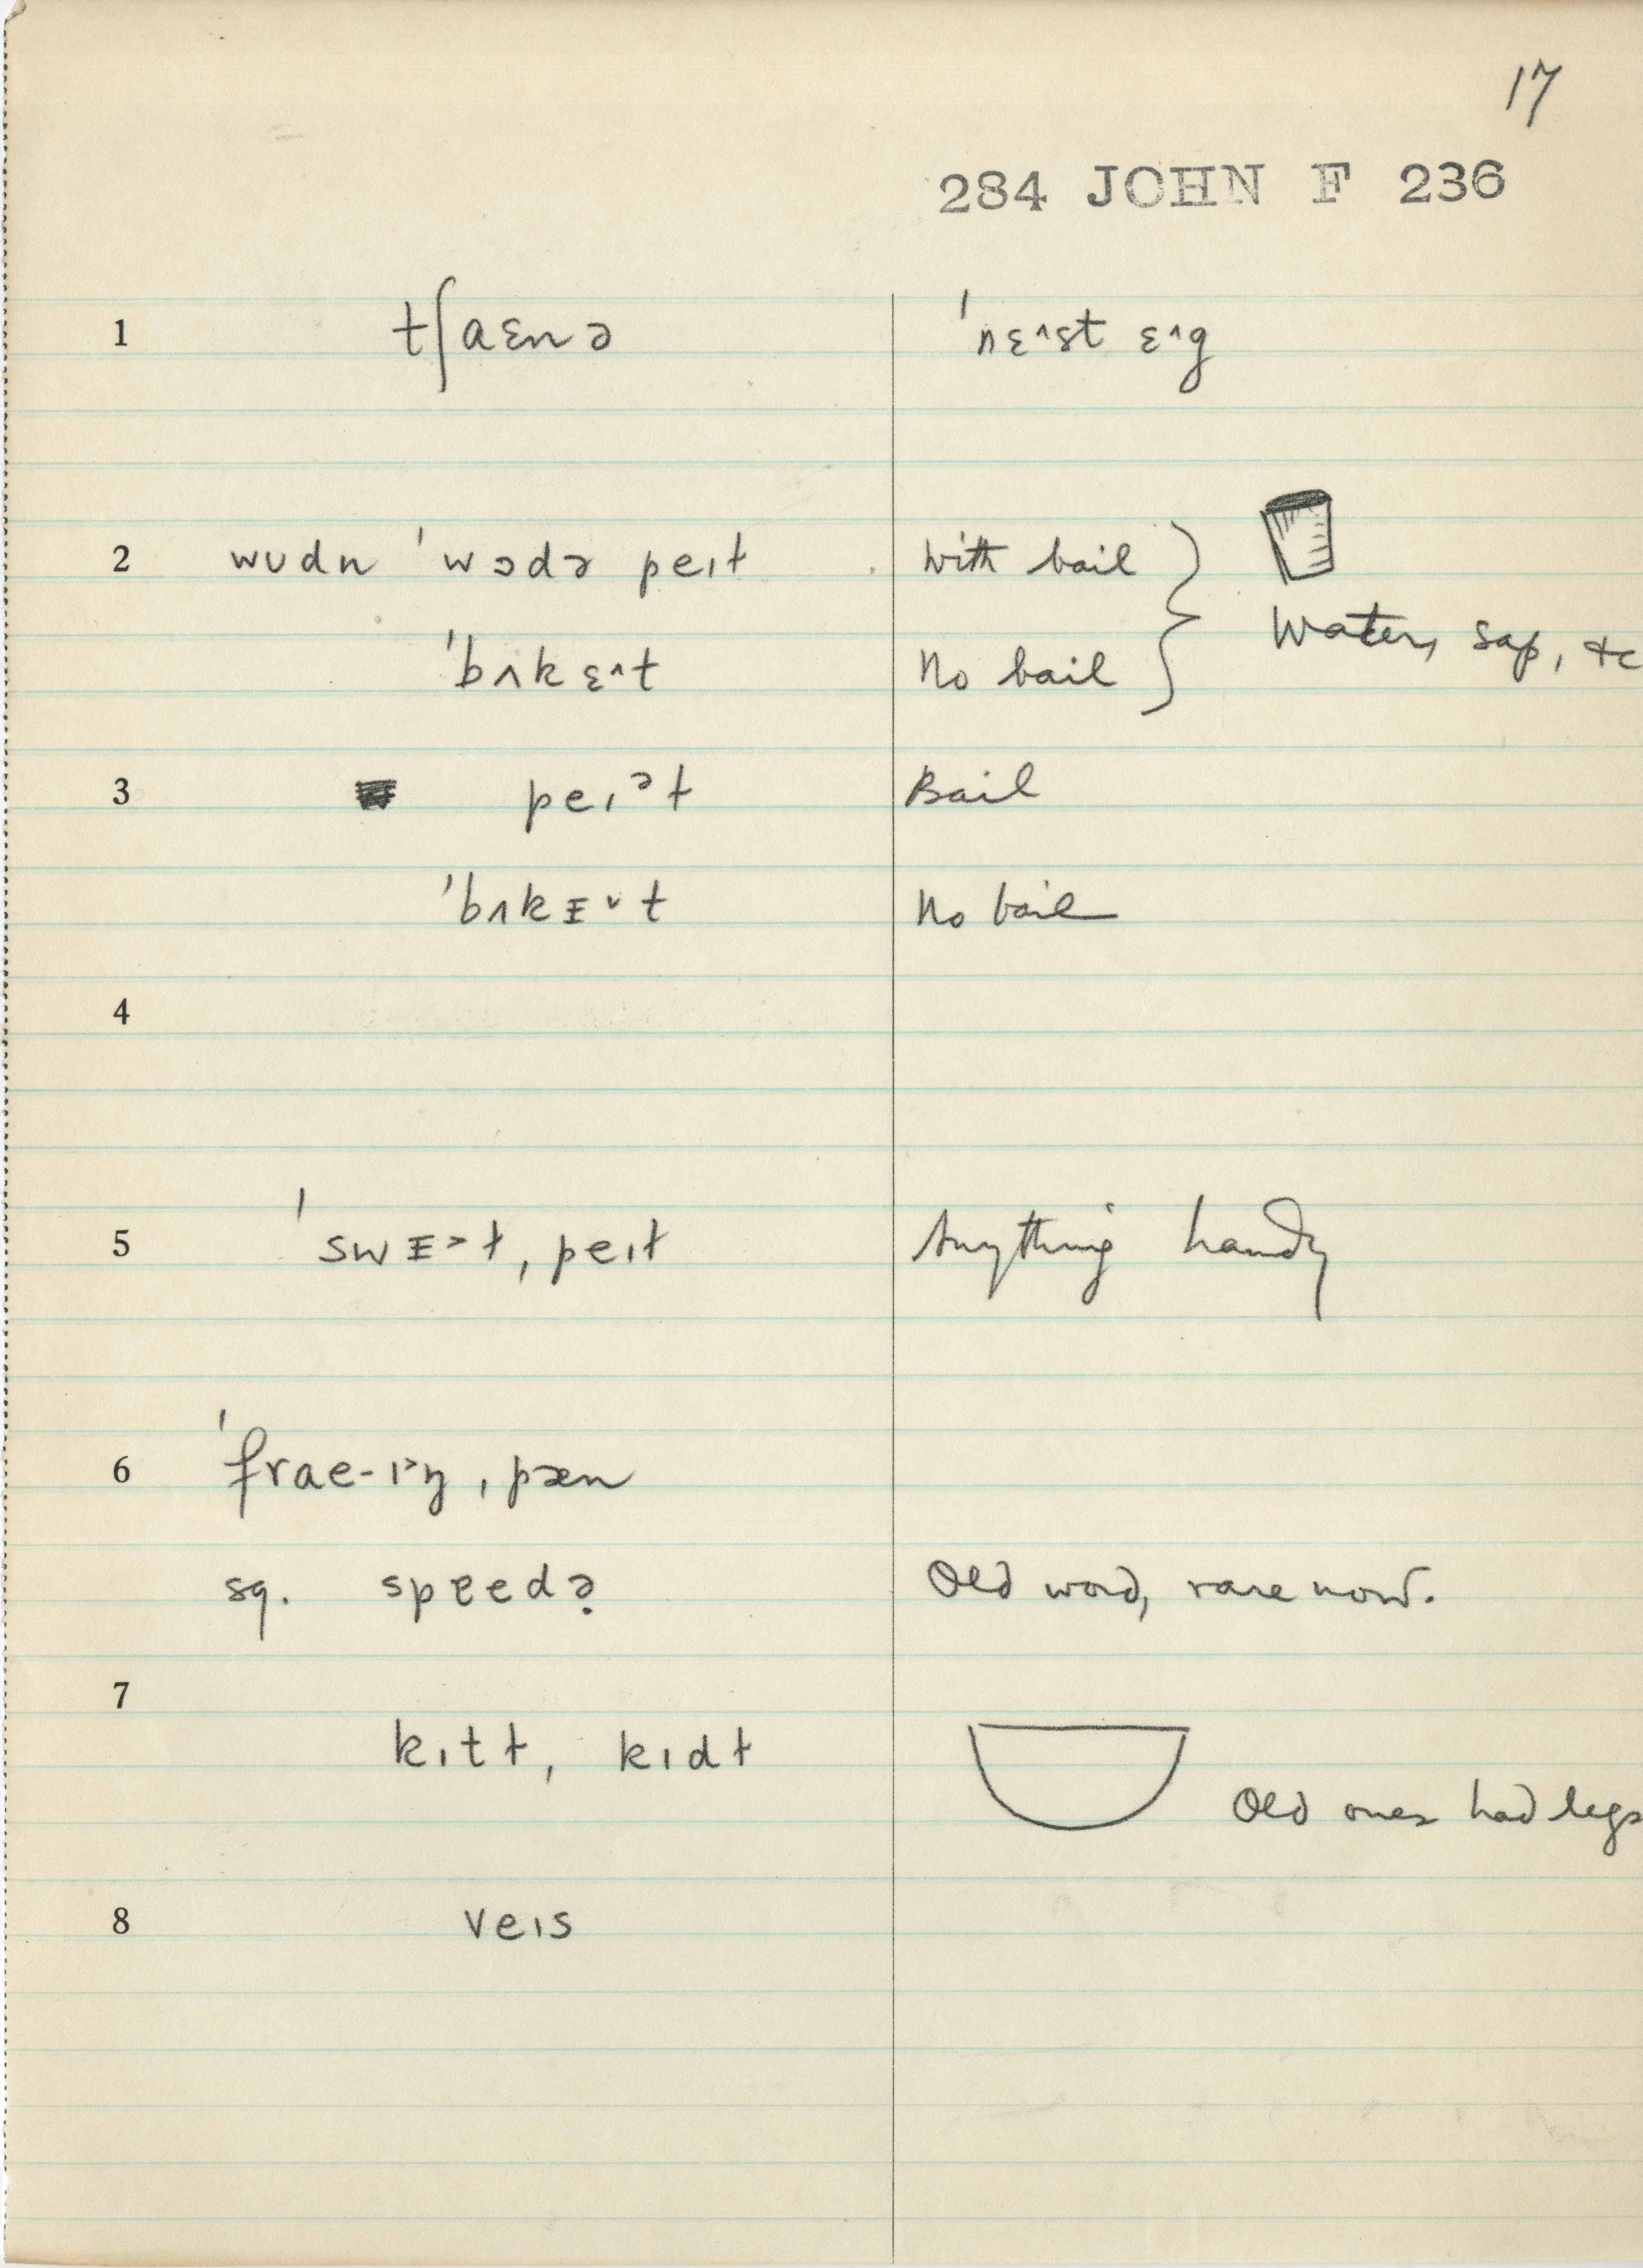 17
284 JOHN F 236
1 tʃaɛnə ˈnɛ^st ɛ^g
2 wʊdn ˈwɔdɚ peɪɫ With bail
Water, sap, &c
ˈbʌkɛ^t No bail
3 peɪᵊɫ Bail
ˈbʌkɪ̵ˇt No bail
4
5 ˈswɪ̵>ɫ, peɪɫ Anything handy
6 ˈfrae-ɪ>ŋ, pæn
sq. spɐɛdɚ Old word, rare now.
7
kɪtɫ, kɪdɫ Old ones had legs
8 veɪs